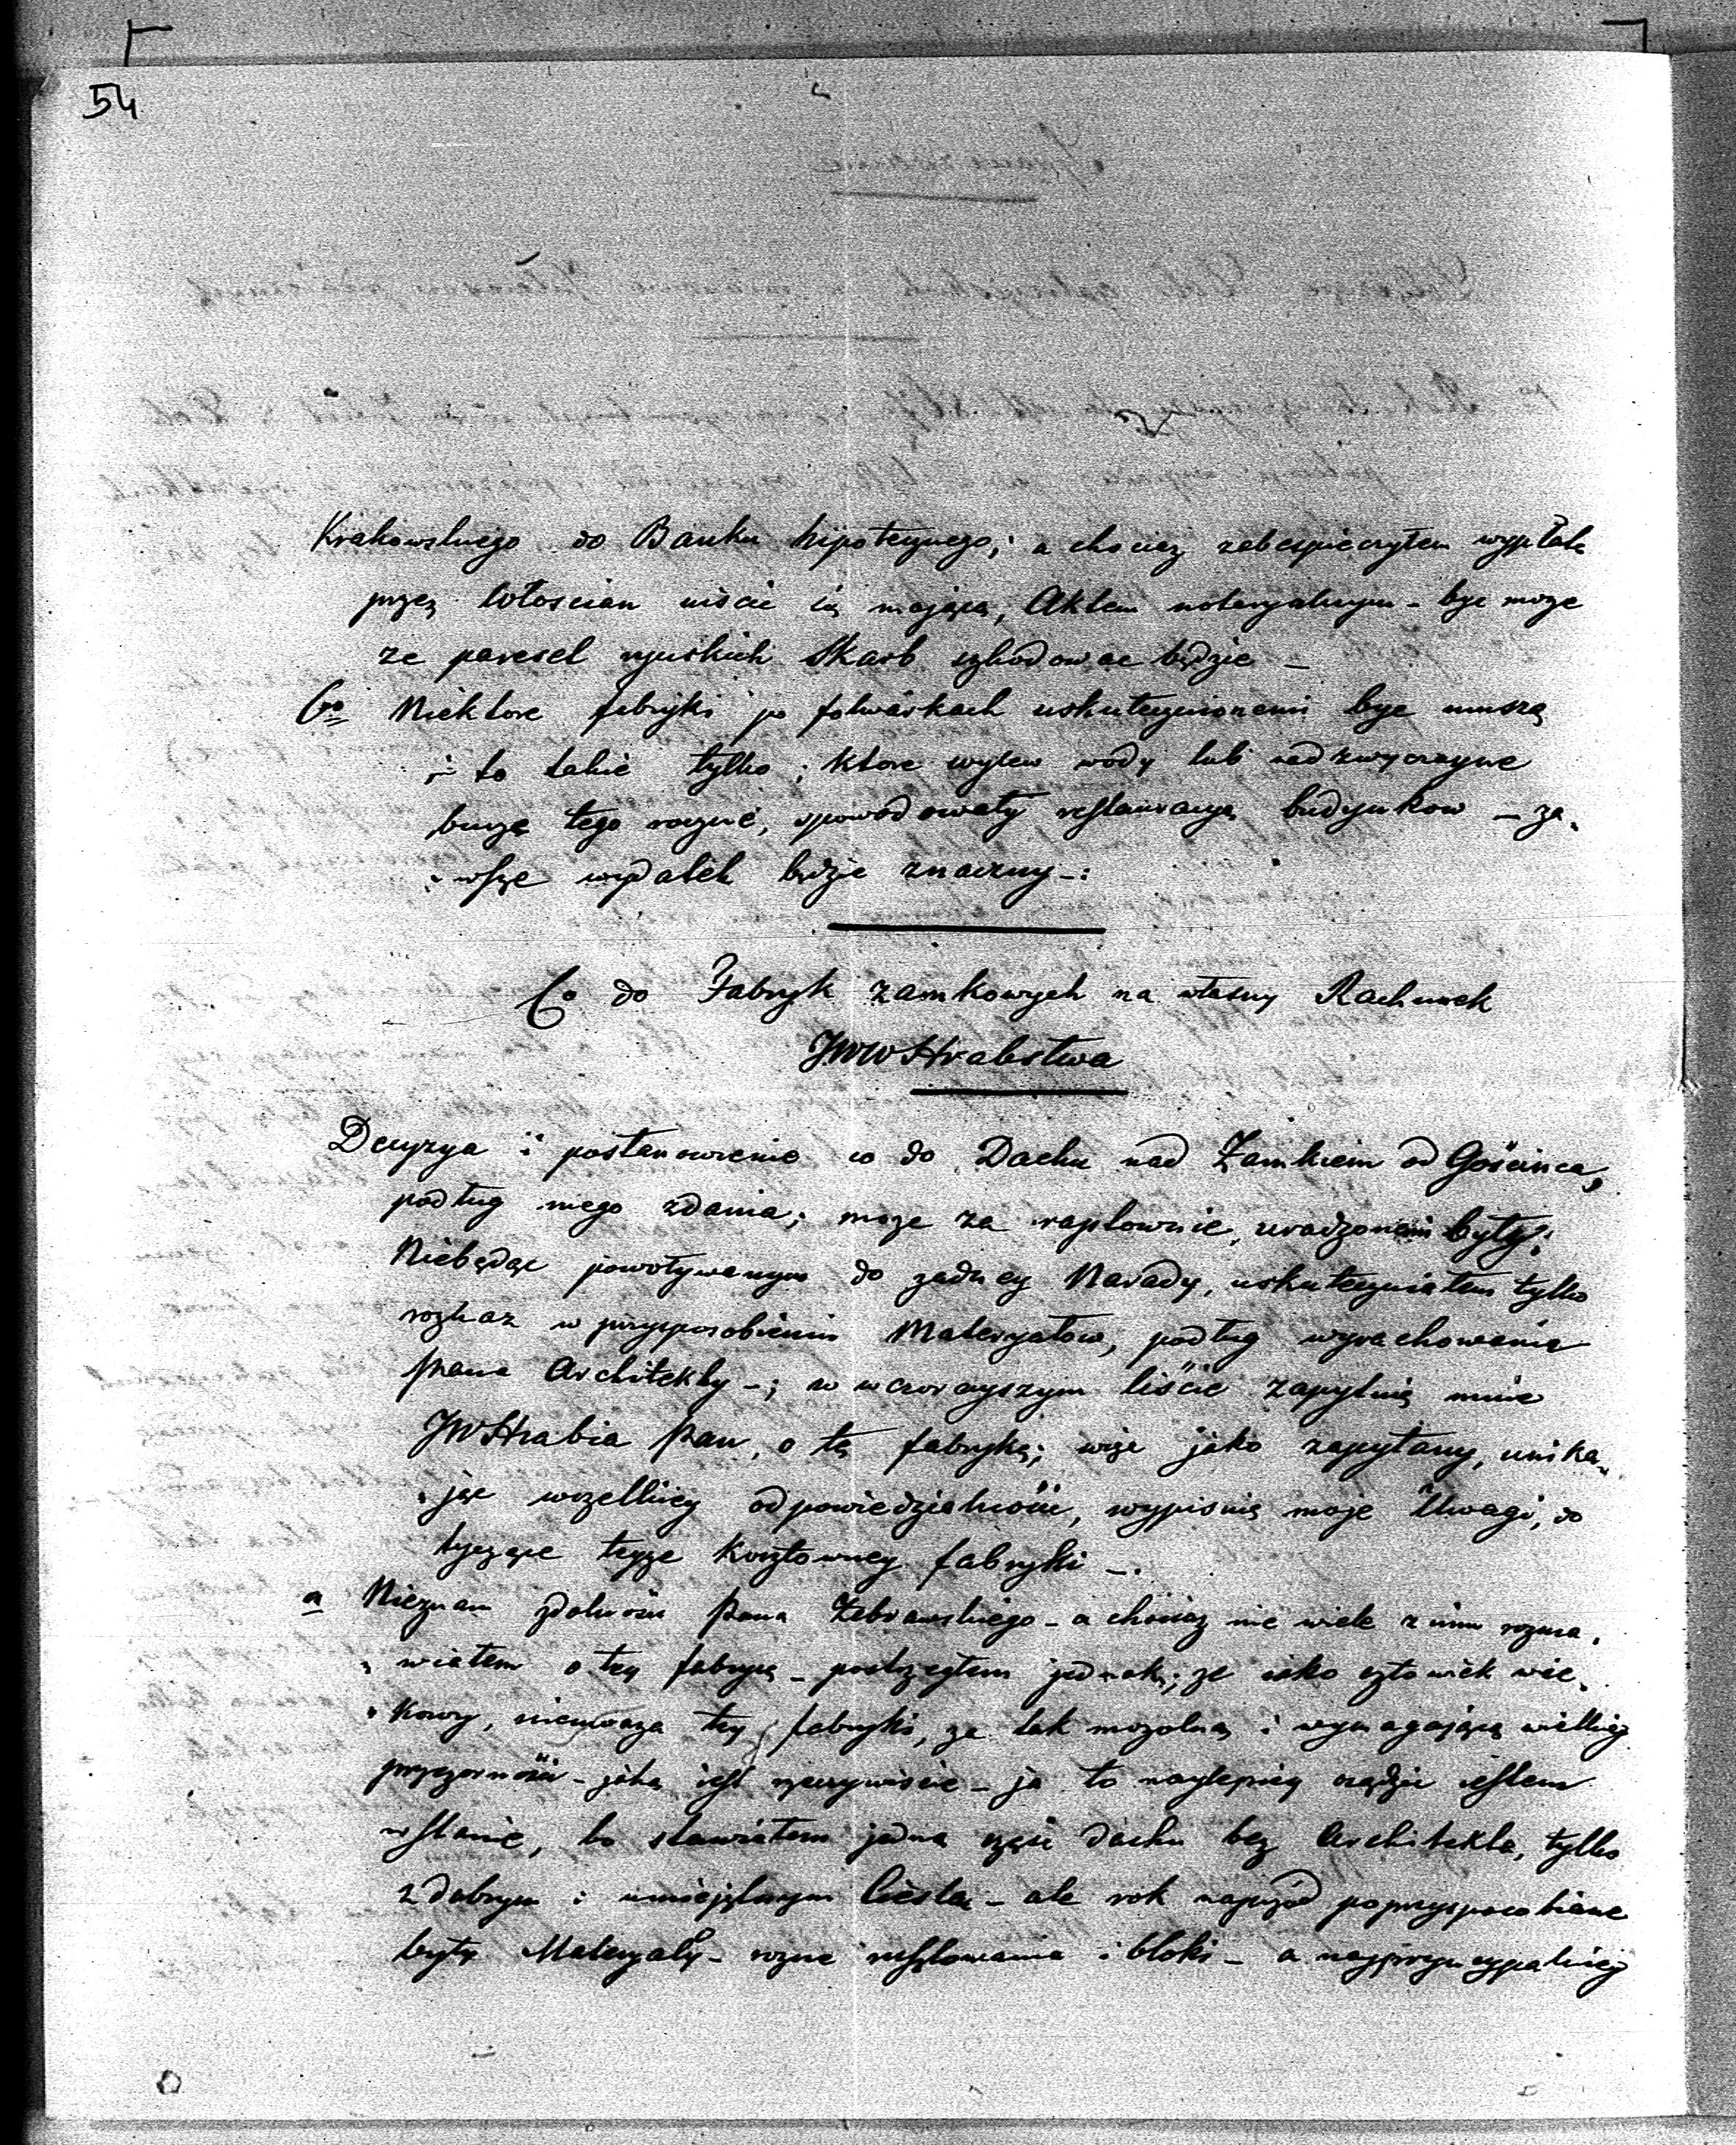 54
Krakowskiego do Banku hipotecznego; a chociaż zabespieczyłem wypłatę
przez Włoscian uiścić się mającą, Aktem notaryalnym - być moze
ze paręset ryńskich Skarb szkodować będzie -
6o Niektore fabryki po folwarkach uskutecznionemi być muszą
i to takie tylko; ktore wylew wody lub nadzwyczayne
burze tego roczne, spowodowały restauracyą budynkow - za-
wsze wydatek będzie znaczny -:
Co do Fabryk zamkowych na własny Rachunek
JWW Hrabstwa
Decyzya i postanowienie co do Dachu nad Zamkiem od Gościnca,
podług mego zdania; moze za raptownie, uradzonemi były;
Niebędąc powoływanym do zadney Narady, uskuteczniałem tylko
rozkaz w przysposobieniu Materyałow, podług wyrachowania
Pana Architekty -; w wczorayszym liście zapytuię mnie
JW Hrabia Pan, o tę fabrykę; więc jako zapytany, unika-
jąc wszelkiey odpowiedzialności, wypisuię moje Uwagi, do
tyczące teyze kosztowney fabryki -.
a Nieznam zdolności Pana Żebrawskiego - a chociaz nie wiele z nim rozma-
wiałem o tey fabryce - postrzegłem jednak; ze iako człowiek wie-
kowy, nieuwaza tey fabryki, za tak mozolną i wymagającą wielkiey
przezorności - jaką iest rzeczywiscie - ja to naylepiey osądzić iestem
wstanie, bo stawiałem jedną częśc dachu bez Architekta, tylko
z dobrym i umiejętnym Cieslą - ale rok naprzód poprzysposobiane
były Materyały - rozne rusztowania i bloki - a nayprzyncypalniey